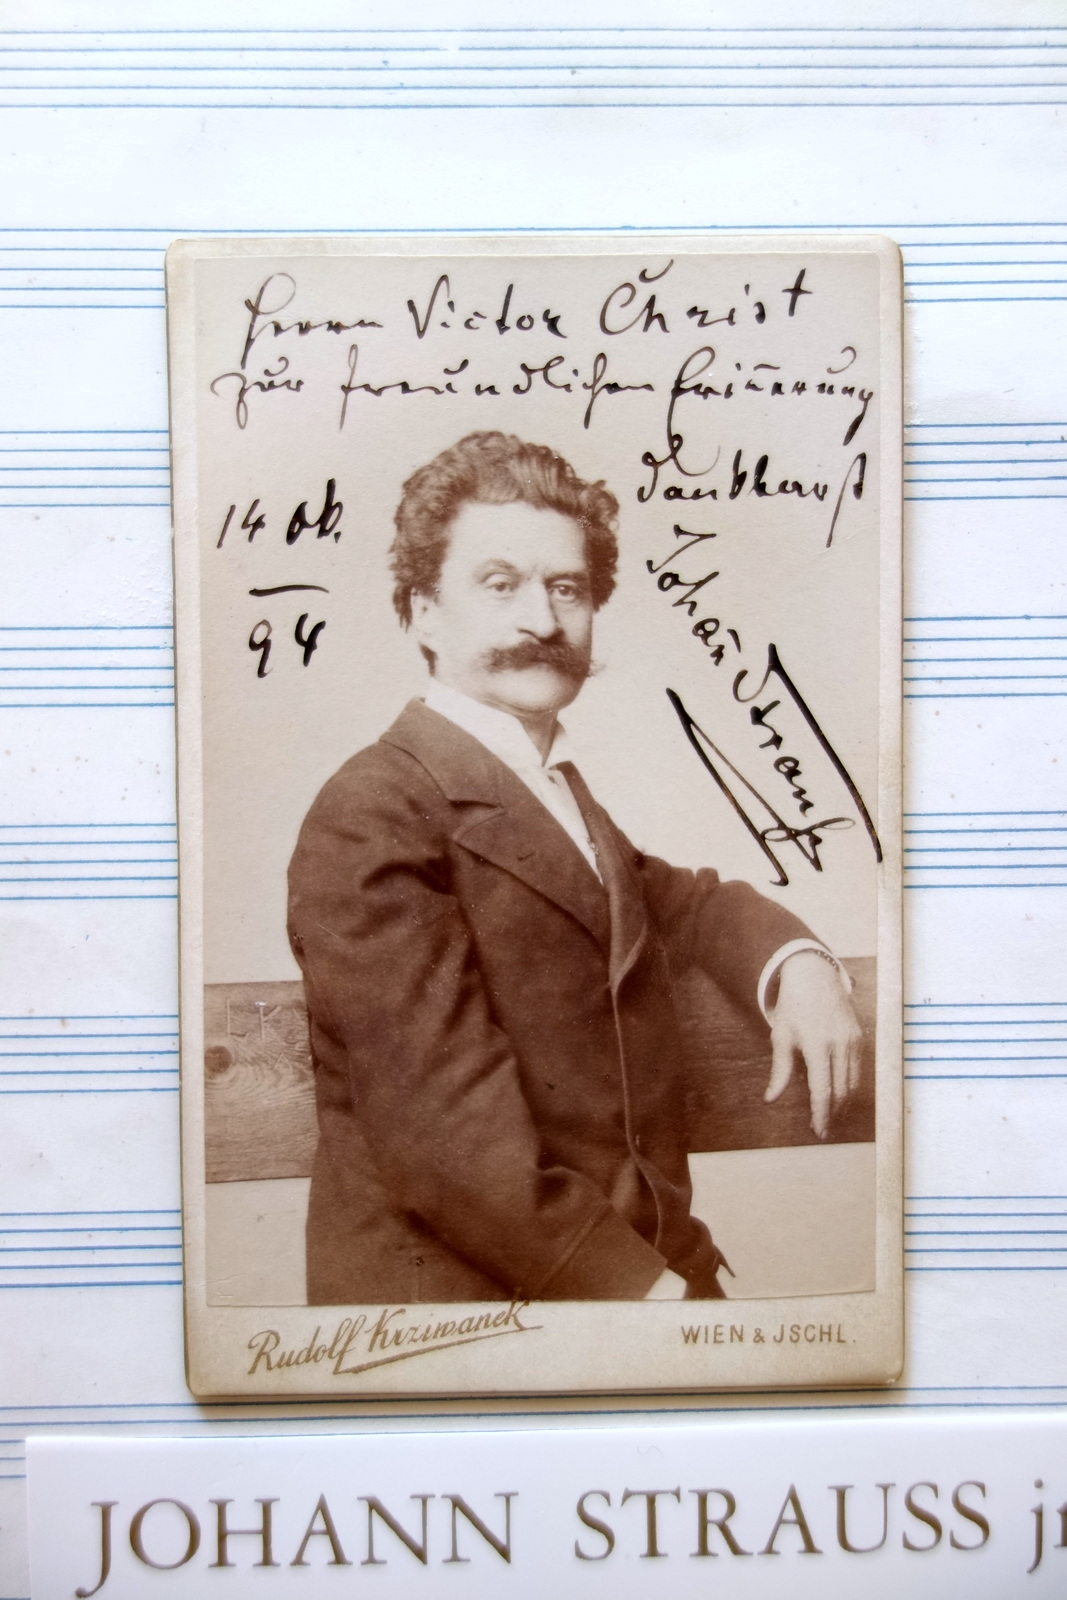 Herrn Victor Christ
zur freundlichen Erin̄erung
dankbarst
14 Ok.
94
Johan̄ Strauss
LK
Rudolf Krziwanek
WIEN & JSCHL.
JOHANN STRAUSS jr